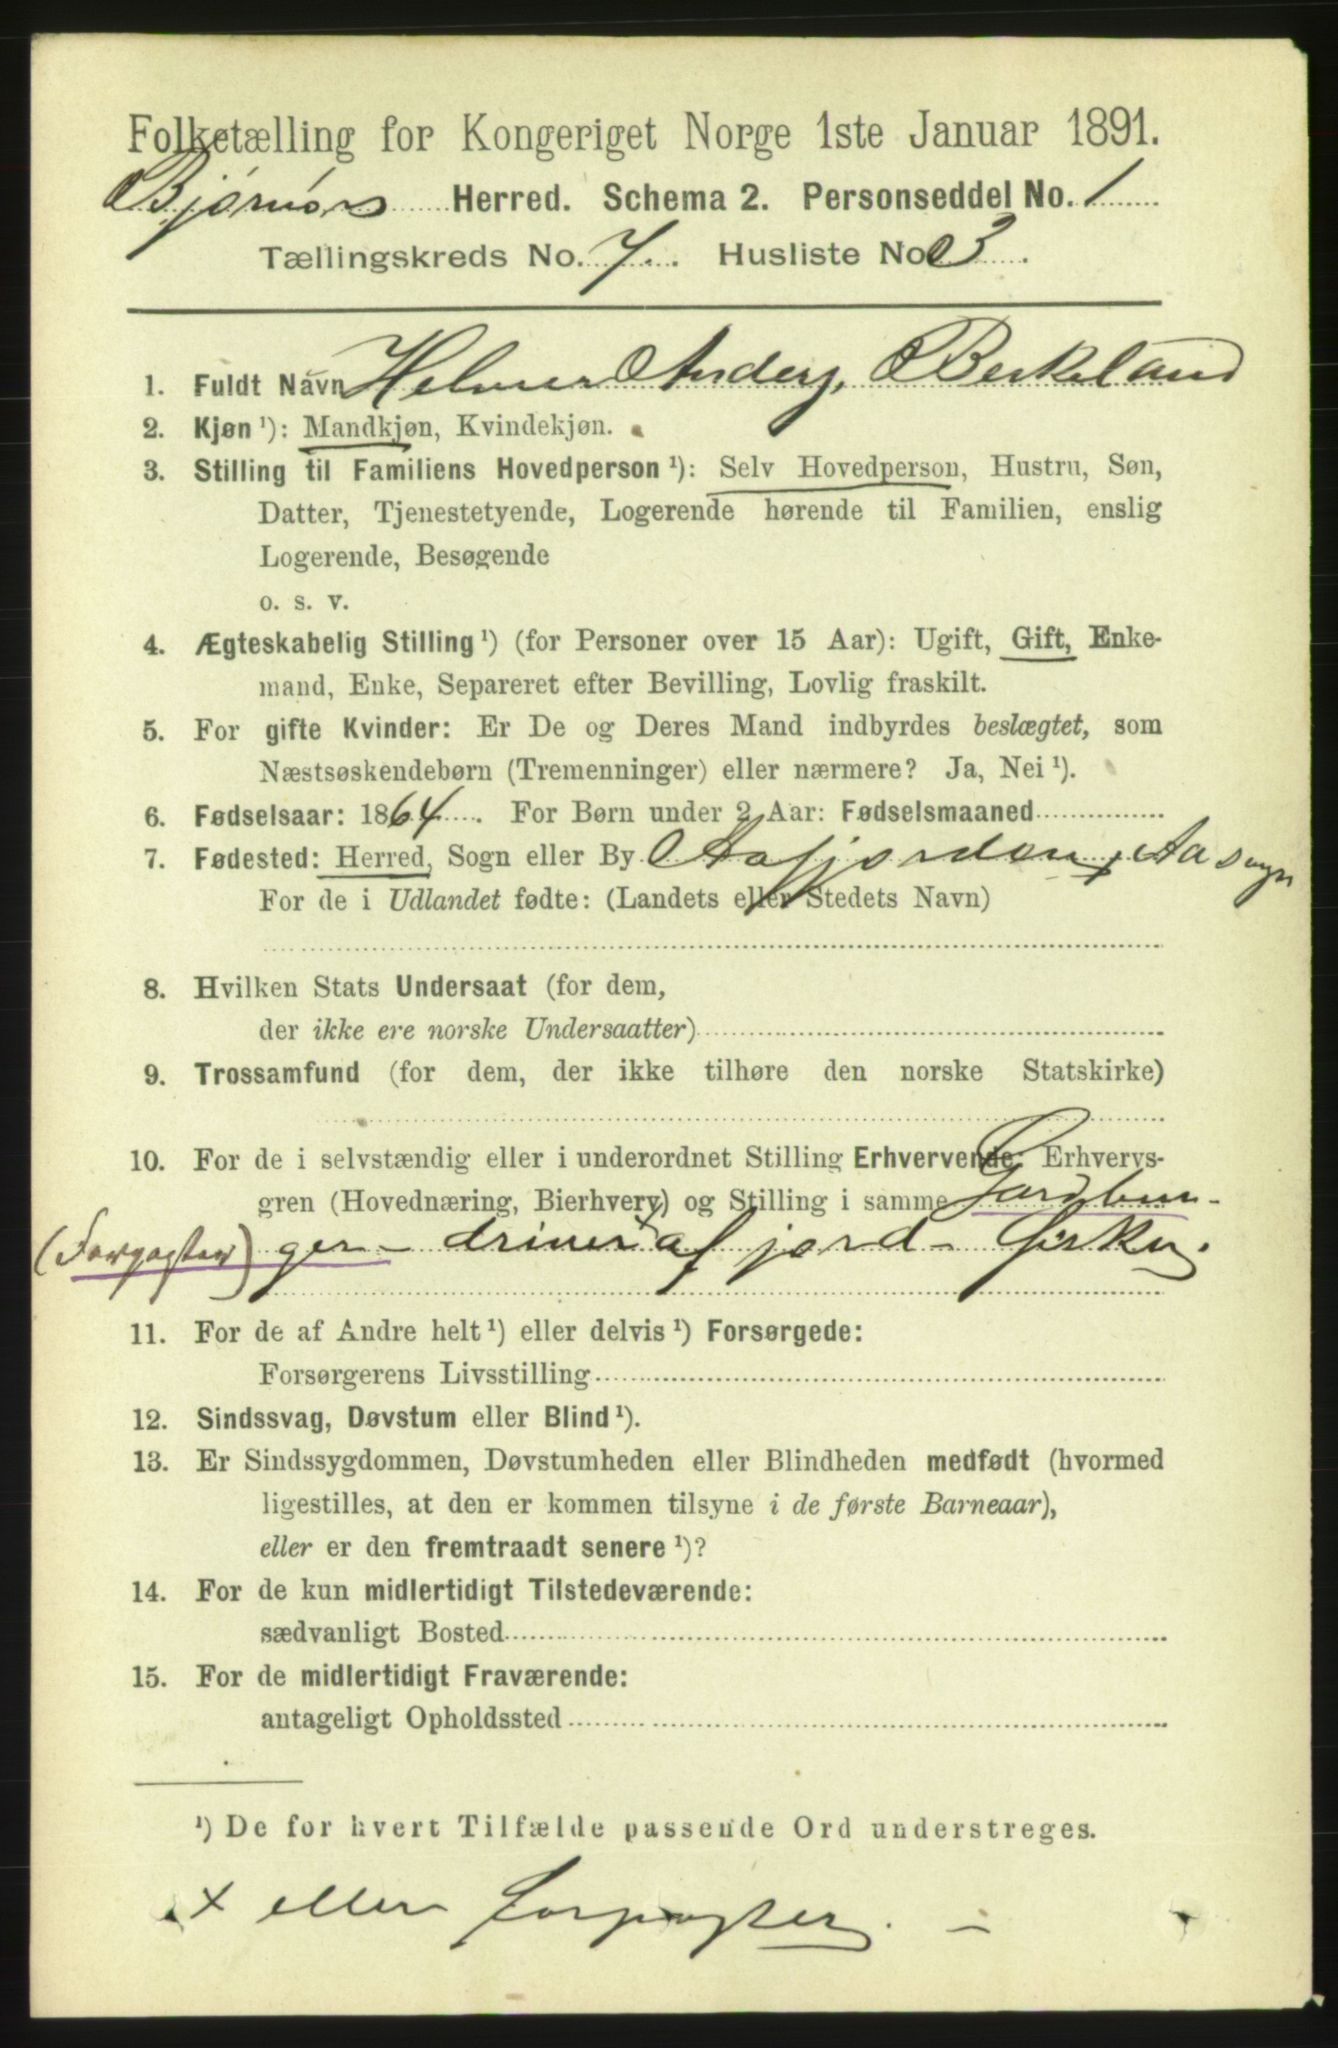 Folketælling for Kongeriget Norge 1ste Januar 1891.
Bjørnørs Herred. Schema 2. Personseddel No. 1
Tællingskreds No. 7. Husliste No 3.
1. Fuldt Navn Helmer Anders. Berkeland
2. Kjøn ¹): Mandkjøn, Kvindekjøn.
3. Stilling til Familiens Hovedperson ¹): Selv Hovedperson, Hustru, Søn,
Datter, Tjenestetyende, Logerende hørende til Familien, enslig
Logerende, Besøgende
o. s. v.
4. Ægteskabelig Stilling ¹) (for Personer over 15 Aar): Ugift, Gift, Enke-
mand, Enke, Separeret efter Bevilling, Lovlig fraskilt.
5. For gifte Kvinder: Er De og Deres Mand indbyrdes beslægtet, som
Næstsøskendebørn (Tremenninger) eller nærmere? Ja, Nei ¹).
6. Fødselsaar: 1864. For Børn under 2 Aar: Fødselsmaaned
7. Fødested: Herred, Sogn eller By Aafjorden, Aa sogn
For de i Udlandet fødte: (Landets eller Stedets Navn)
8. Hvilken Stats Undersaat (for dem,
der ikke ere norske Undersaatter)
9. Trossamfund (for dem, der ikke tilhøre den norske Statskirke)
10. For de i selvstændig eller i underordnet Stilling Erhvervende: Erhvervs-
gren (Hovednæring, Bierhverv) og Stilling i samme Gardbru-
(Forpagter) ger - driver x af jord -
11. For de af Andre helt ¹) eller delvis ¹) Forsørgede:
Forsørgerens Livsstilling
12. Sindssvag, Døvstum eller Blind ¹).
13. Er Sindssygdommen, Døvstumheden eller Blindheden medfødt (hvormed
ligestilles, at den er kommen tilsyne i de første Barneaar),
eller er den fremtraadt senere ¹)?
14. For de kun midlertidigt Tilstedeværende:
sædvanligt Bosted
15. For de midlertidigt Fraværende:
antageligt Opholdssted
¹) De for hvert Tilfælde passende Ord understreges.
x eller forpagter. -